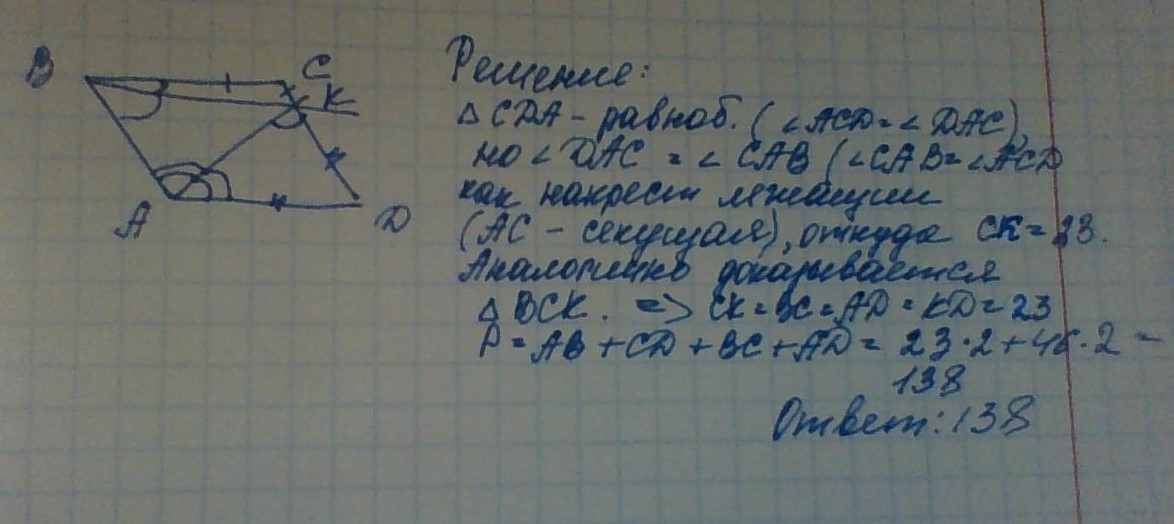 B
C
K
A
D
Решение:
△ CDA - равноб. (∠ACD = ∠DAC),
но ∠DAC = ∠CAB (∠CAB = ∠ACD
как накрест лежащии
(AC - секущая), откуда CK = 23.
Аналогично доказывается
△ BCK. => CK = BC = AD = KD = 23
P = AB + CD + BC + AD = 23·2 + 46·2 =
138
Ответ: 138